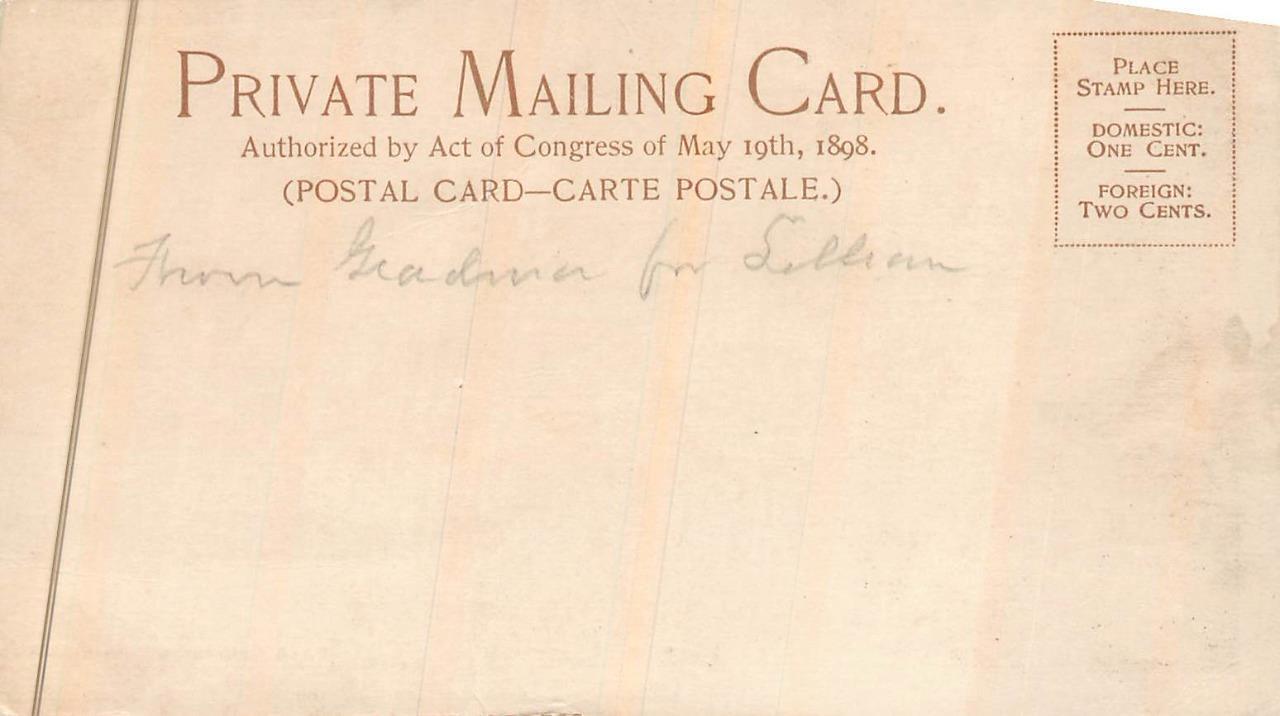 PRIVATE MAILING CARD.
Authorized by Act of Congress of May 19th, 1898.
(POSTAL CARD—CARTE POSTALE.)
PLACE
STAMP HERE.
DOMESTIC:
ONE CENT.
FOREIGN:
TWO CENTS.
From Grandma for Lillian